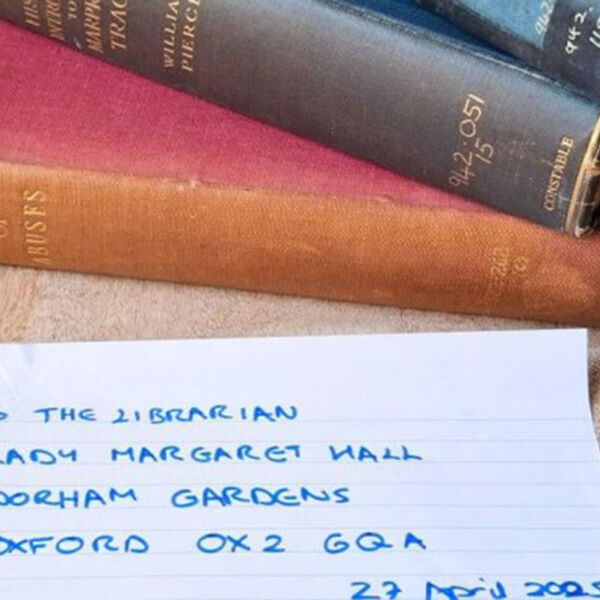 INTRO
TO
MARP
TRAC
WILLIA
PIERCE
942.051
15
CONSTABLE
942.
BUSES
THE LIBRARIAN
LADY MARGARET HALL
NORHAM GARDENS
OXFORD OX2 6QA
27 April 2025